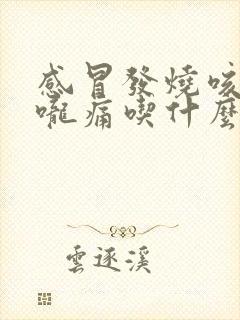 感冒發燒咳
嚨痛喫什麼
雲逐溪